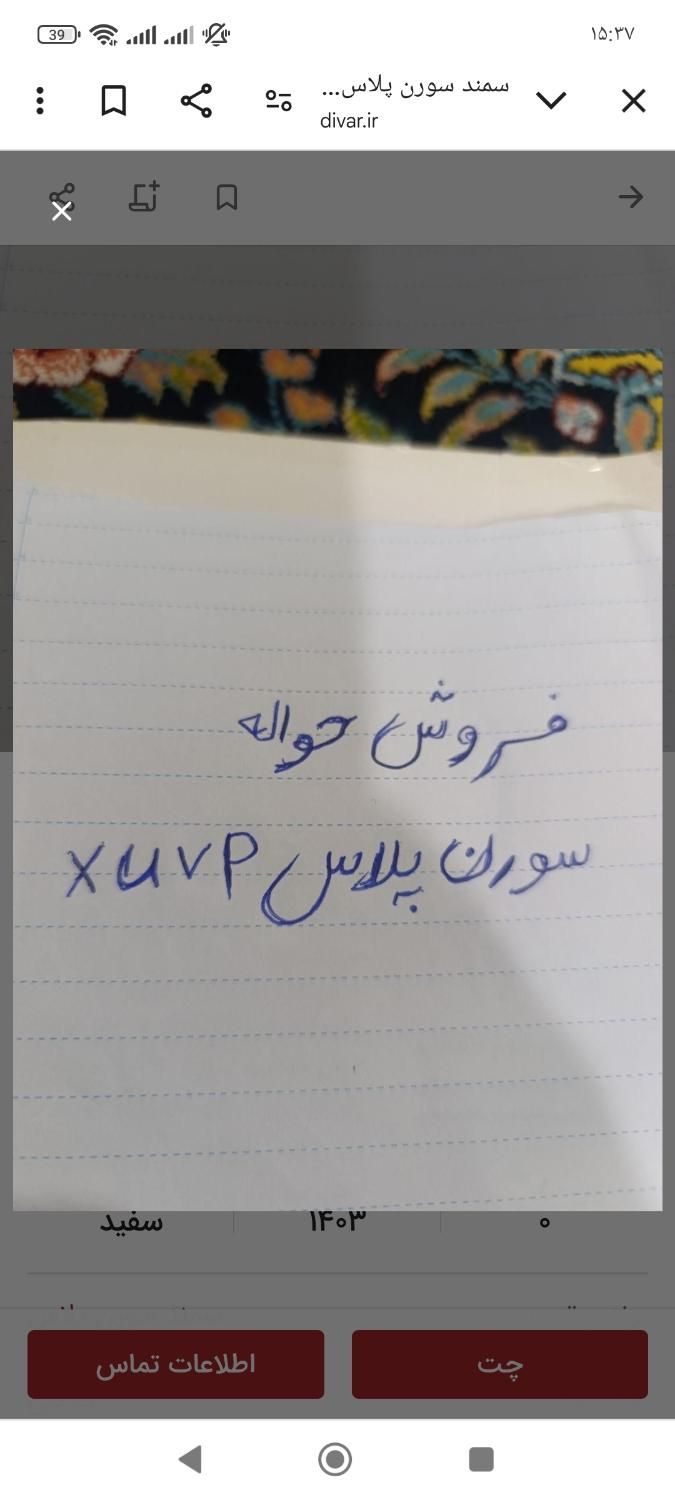 39
۱۵:۳۷
سمند سورن پلاس...
divar.ir
فروش حواله
سورن پلاس XUVP
۰
۱۴۰۳
سفید
چت
اطلاعات تماس